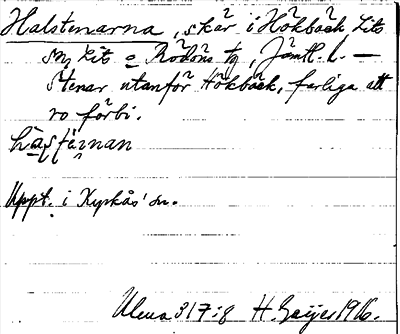 Halstenarna, skär i Hökbäck Lits
sn, Lit o Rödöns tg, Jämtl. l. —
Stenar utanför Hökbäck, farliga att
ro förbi.
Uppt. i Kyrkås' sn.
Ulma 317:8 H. Geijer 1916.